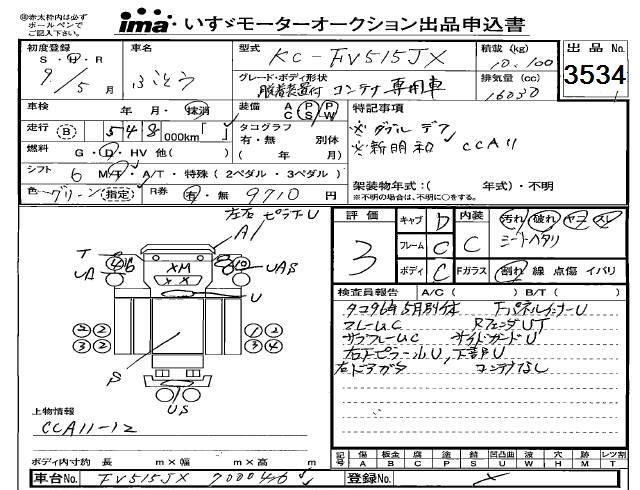 ㊟赤太枠内は必ず
ボールペンで
ご記入下さい。
ima・いすゞモーターオークション出品申込書
出品No.
3534
初度登録
S・H・R
9/5月
車名
ふそう
型式
KC-FV515JX
積載(kg)
10,100
グレード・ボディ形状
脱着装置付 コンテナ専用車
排気量(cc)
16030
車検
年 月・抹消
装備
A P P
C S W
特記事項
※ダブルデフ
※新明和 CCA11
走行
B 548,000km「 」
タコグラフ
有・無 別体
( 年 月)
燃料
G・D・HV 他( )
シフト
6 M/T・A/T・特殊(2ペダル・3ペダル)
架装物年式:( 年式)・不明
※不明の場合は、不明に○をする。
色
グリーン(指定)
R券
有・無 9710円
左右ピラーU
A
T
UA
UAS
XM
XX
U
S
US
評価
3
キャブ D
フレーム C
ボディ C
内装
C
汚れ 破れ ヤコゲ スレ
シートヘタリ
Fガラス
割れ 線 点傷 イバリ
検査員報告
A/C( ) B/T( )
タコ96年5月別体 下パネルインナーU
フレームC RフェンダUT
サブフレームC サイドガードU
右下ピラーU、下部U
右ドアガタ コンテナなし
上物情報
CCA11-12
ボディ内寸約 長 m×幅 m×高 m
記号
傷 板金 腐 塗 錆 凹凸曲 波 穴 跡 レツ割
A B C P S U W H M T
車台No.
FV515JX
登録No.